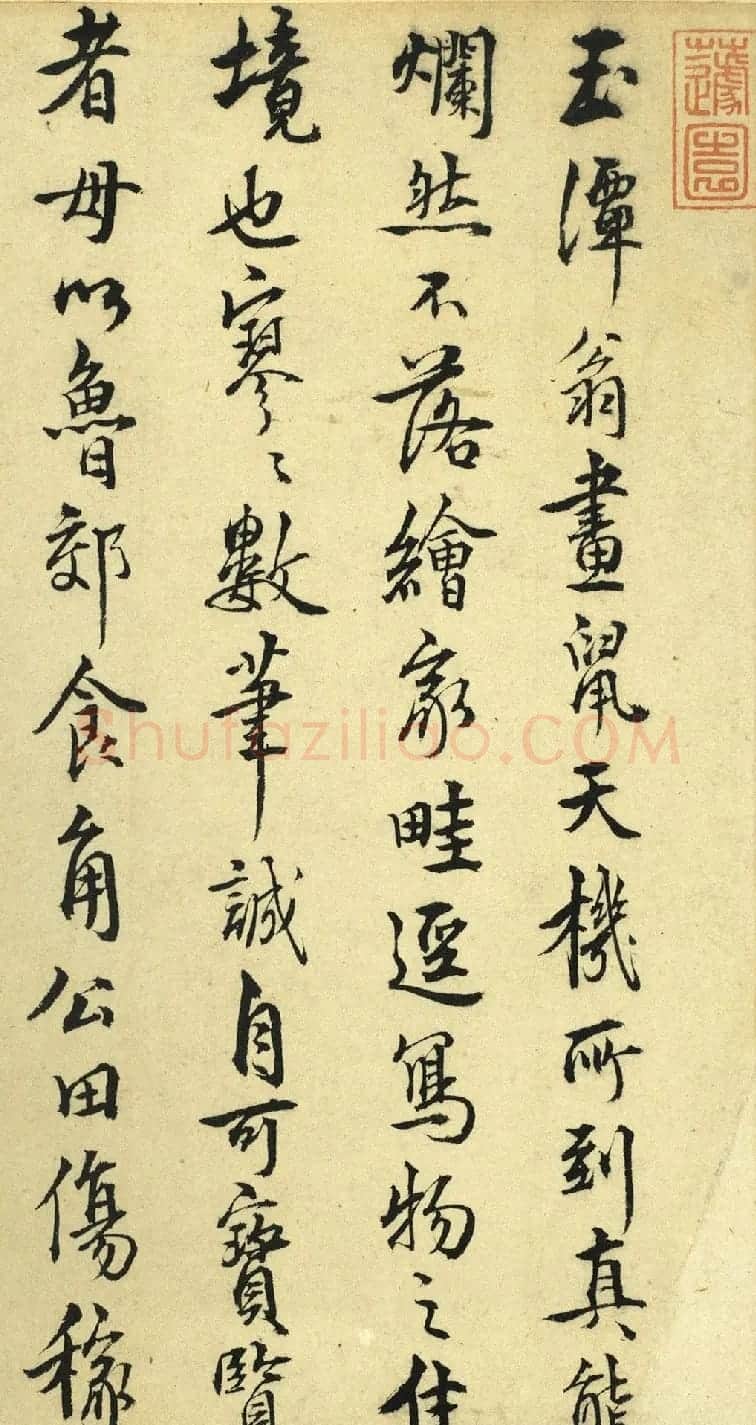 玉潭翁畫鼠天機所到真能
爛然不落繪家畦逕寫物之佳
境也寥〻數筆誠自可寶覽
者毋以魯郊食角公田傷稼
Shufaziliao.COM